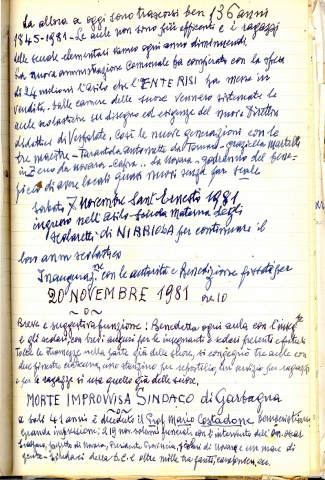 Da allora a oggi sono trascorsi ben 136 anni
1845-1981 - Le aule non sono più efficienti e i ragazzi
delle scuole elementari vanno ogni anno diminuendo.
La nuova amministrazione Comunale ha comperato con la spesa
di 24 milioni l'asilo che l'ENTE RISI ha messo in
vendita. Dalle camere delle suore vennero sistemate le
aule scolastiche su disegno ed esigenze del nuovo Direttore
didattico di Vespolate. Così le nuove generazioni con le
tre maestre - Tarantola Antonietta da Tornaco - Graziella Martelli
in Zeno da Novara - da Novara - godranno del
di avere locali quasi nuovi per
Sabato 7 Novembre Sant'Ernesto 1981
ingresso nell'Asilo - Scuola Materna degli
Scolaretti di NIBBIOLA per continuare il
loro anno scolastico
Inaugurazne con le autorità e Benedizione fissata per
20 NOVEMBRE 1981 ore 10
Breve e suggestiva funzione: Benedetta ogni aula con l'
e gli scolari, con brevi auguri per le insegnanti e scolari presente
Tolte le tramezze nella parte già delle suore, si conseguirono tre aule con
due finestre ciascuna, uno stanzino per ripostiglio, un servizio per ragazzi
per le ragazze si usa quello già delle suore.
MORTE IMPROVVISA SINDACO di Garbagna
a soli 41 anni è deceduto il Prof. Mario Costadone
grande impressione: il 19 nov. solenni funerali con l'intervento dell'On. Oscar
di Novara, Presidente Provincia,
gente - sindaci della e oltre mille tra genti,